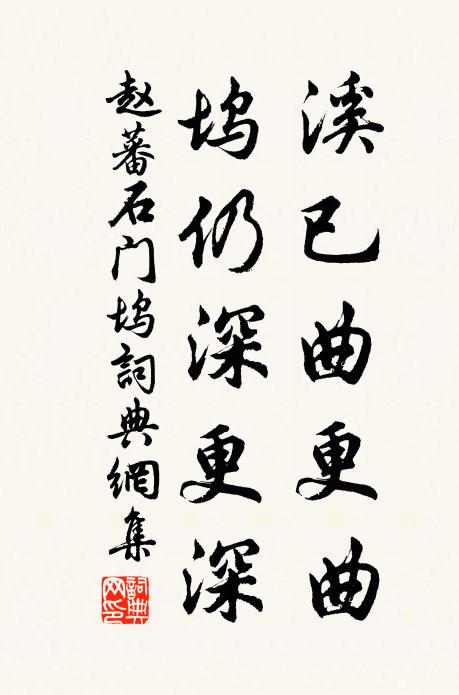 溪已曲更曲
坞仍深更深
赵蕃石门坞詞典網集
詞典网印